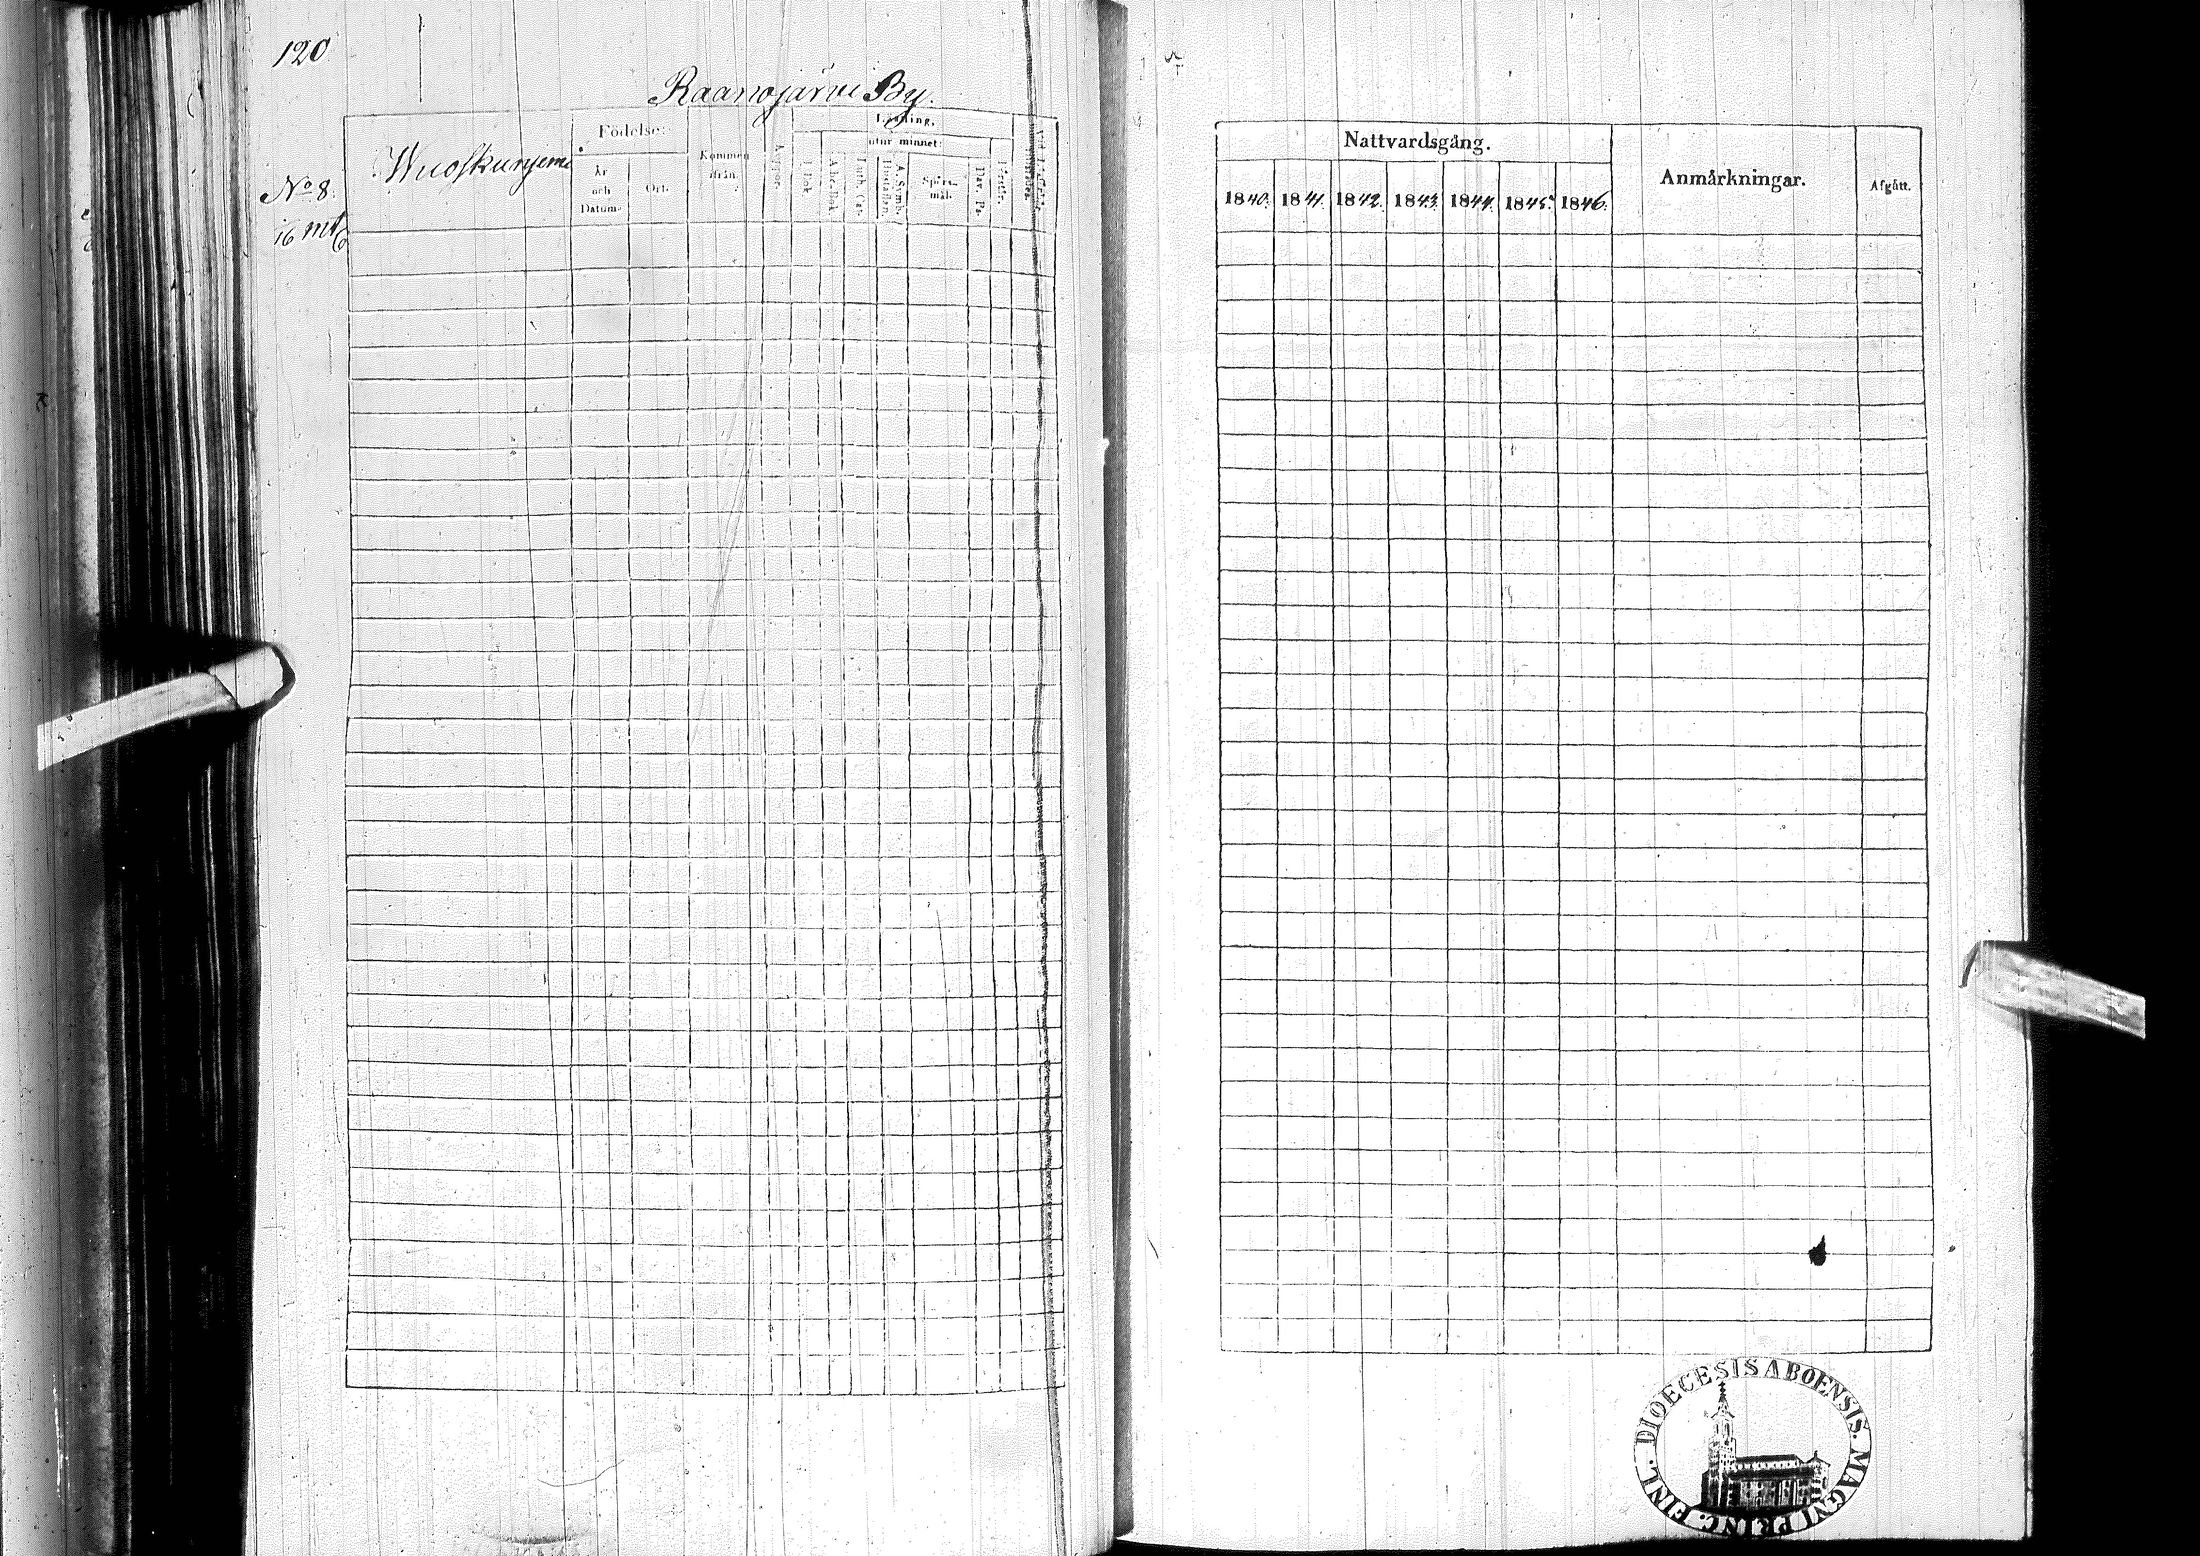 120
Raanojärvi By.
Wuoskunjemi
No 8.
16 mtl
Födelse:
År och Datum.
Ort.
Kommen ifrån
Läsning,
utur minnet:
I Bok.
A.b.c. Bok.
Luth. Cat.
A. Symb.
Hustaflan.
Spörs-mål.
Dav. Ps.
Nattvardsgång.
1840. 1841. 1842. 1843. 1844. 1845. 1846.
Anmärkningar.
Afgått.
DIOECESIS ABOENSIS. MAGNI PRINC. FINL.